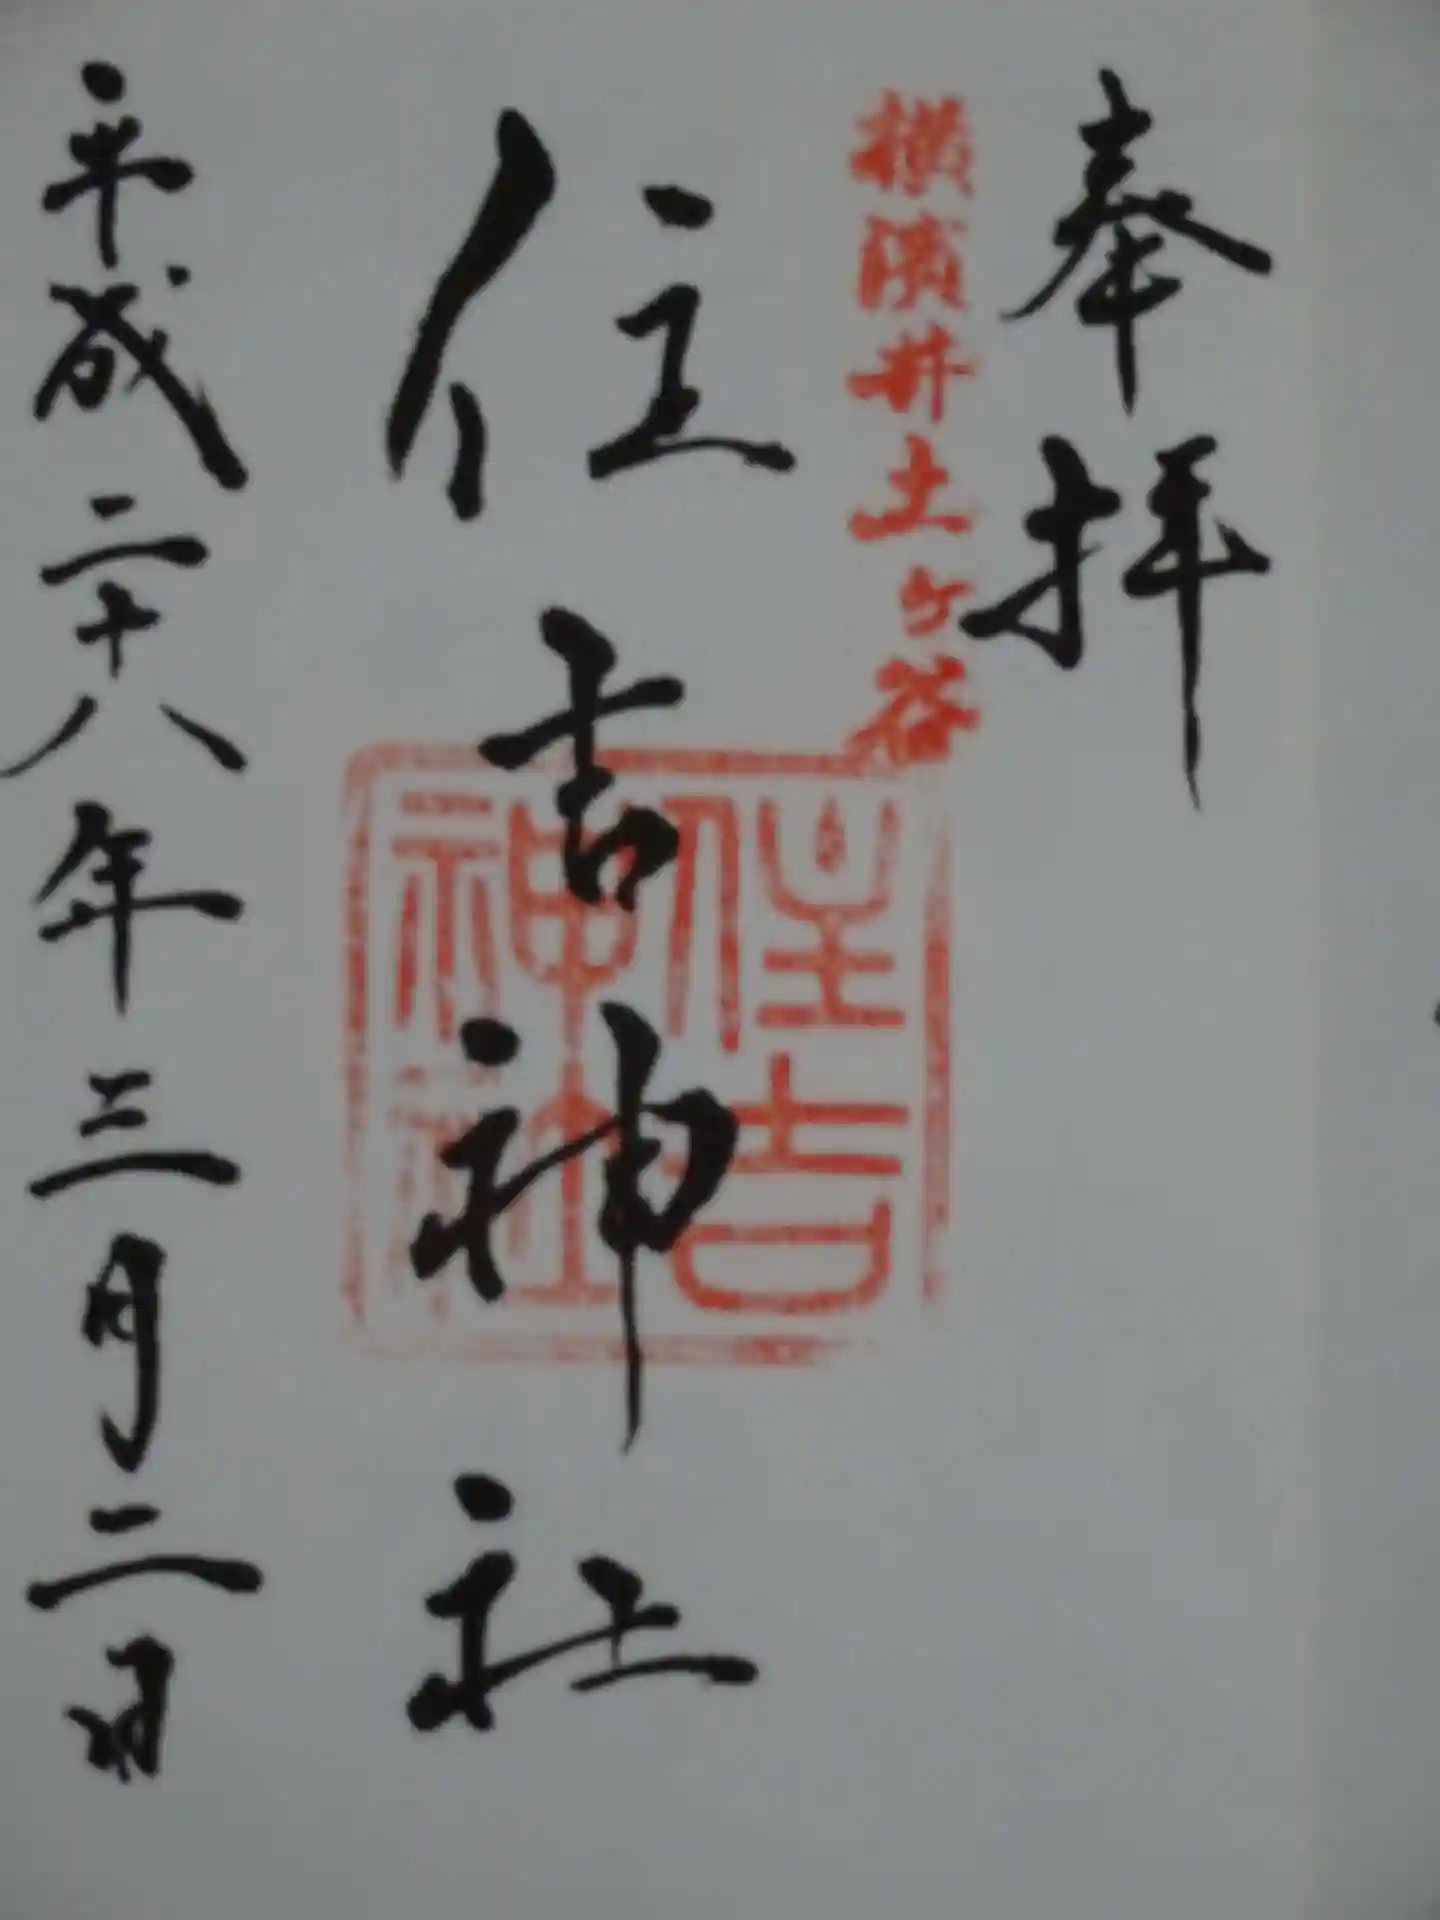 奉拝
横濱井土ヶ谷
住吉神社
住吉
神社
平成二十八年三月二日